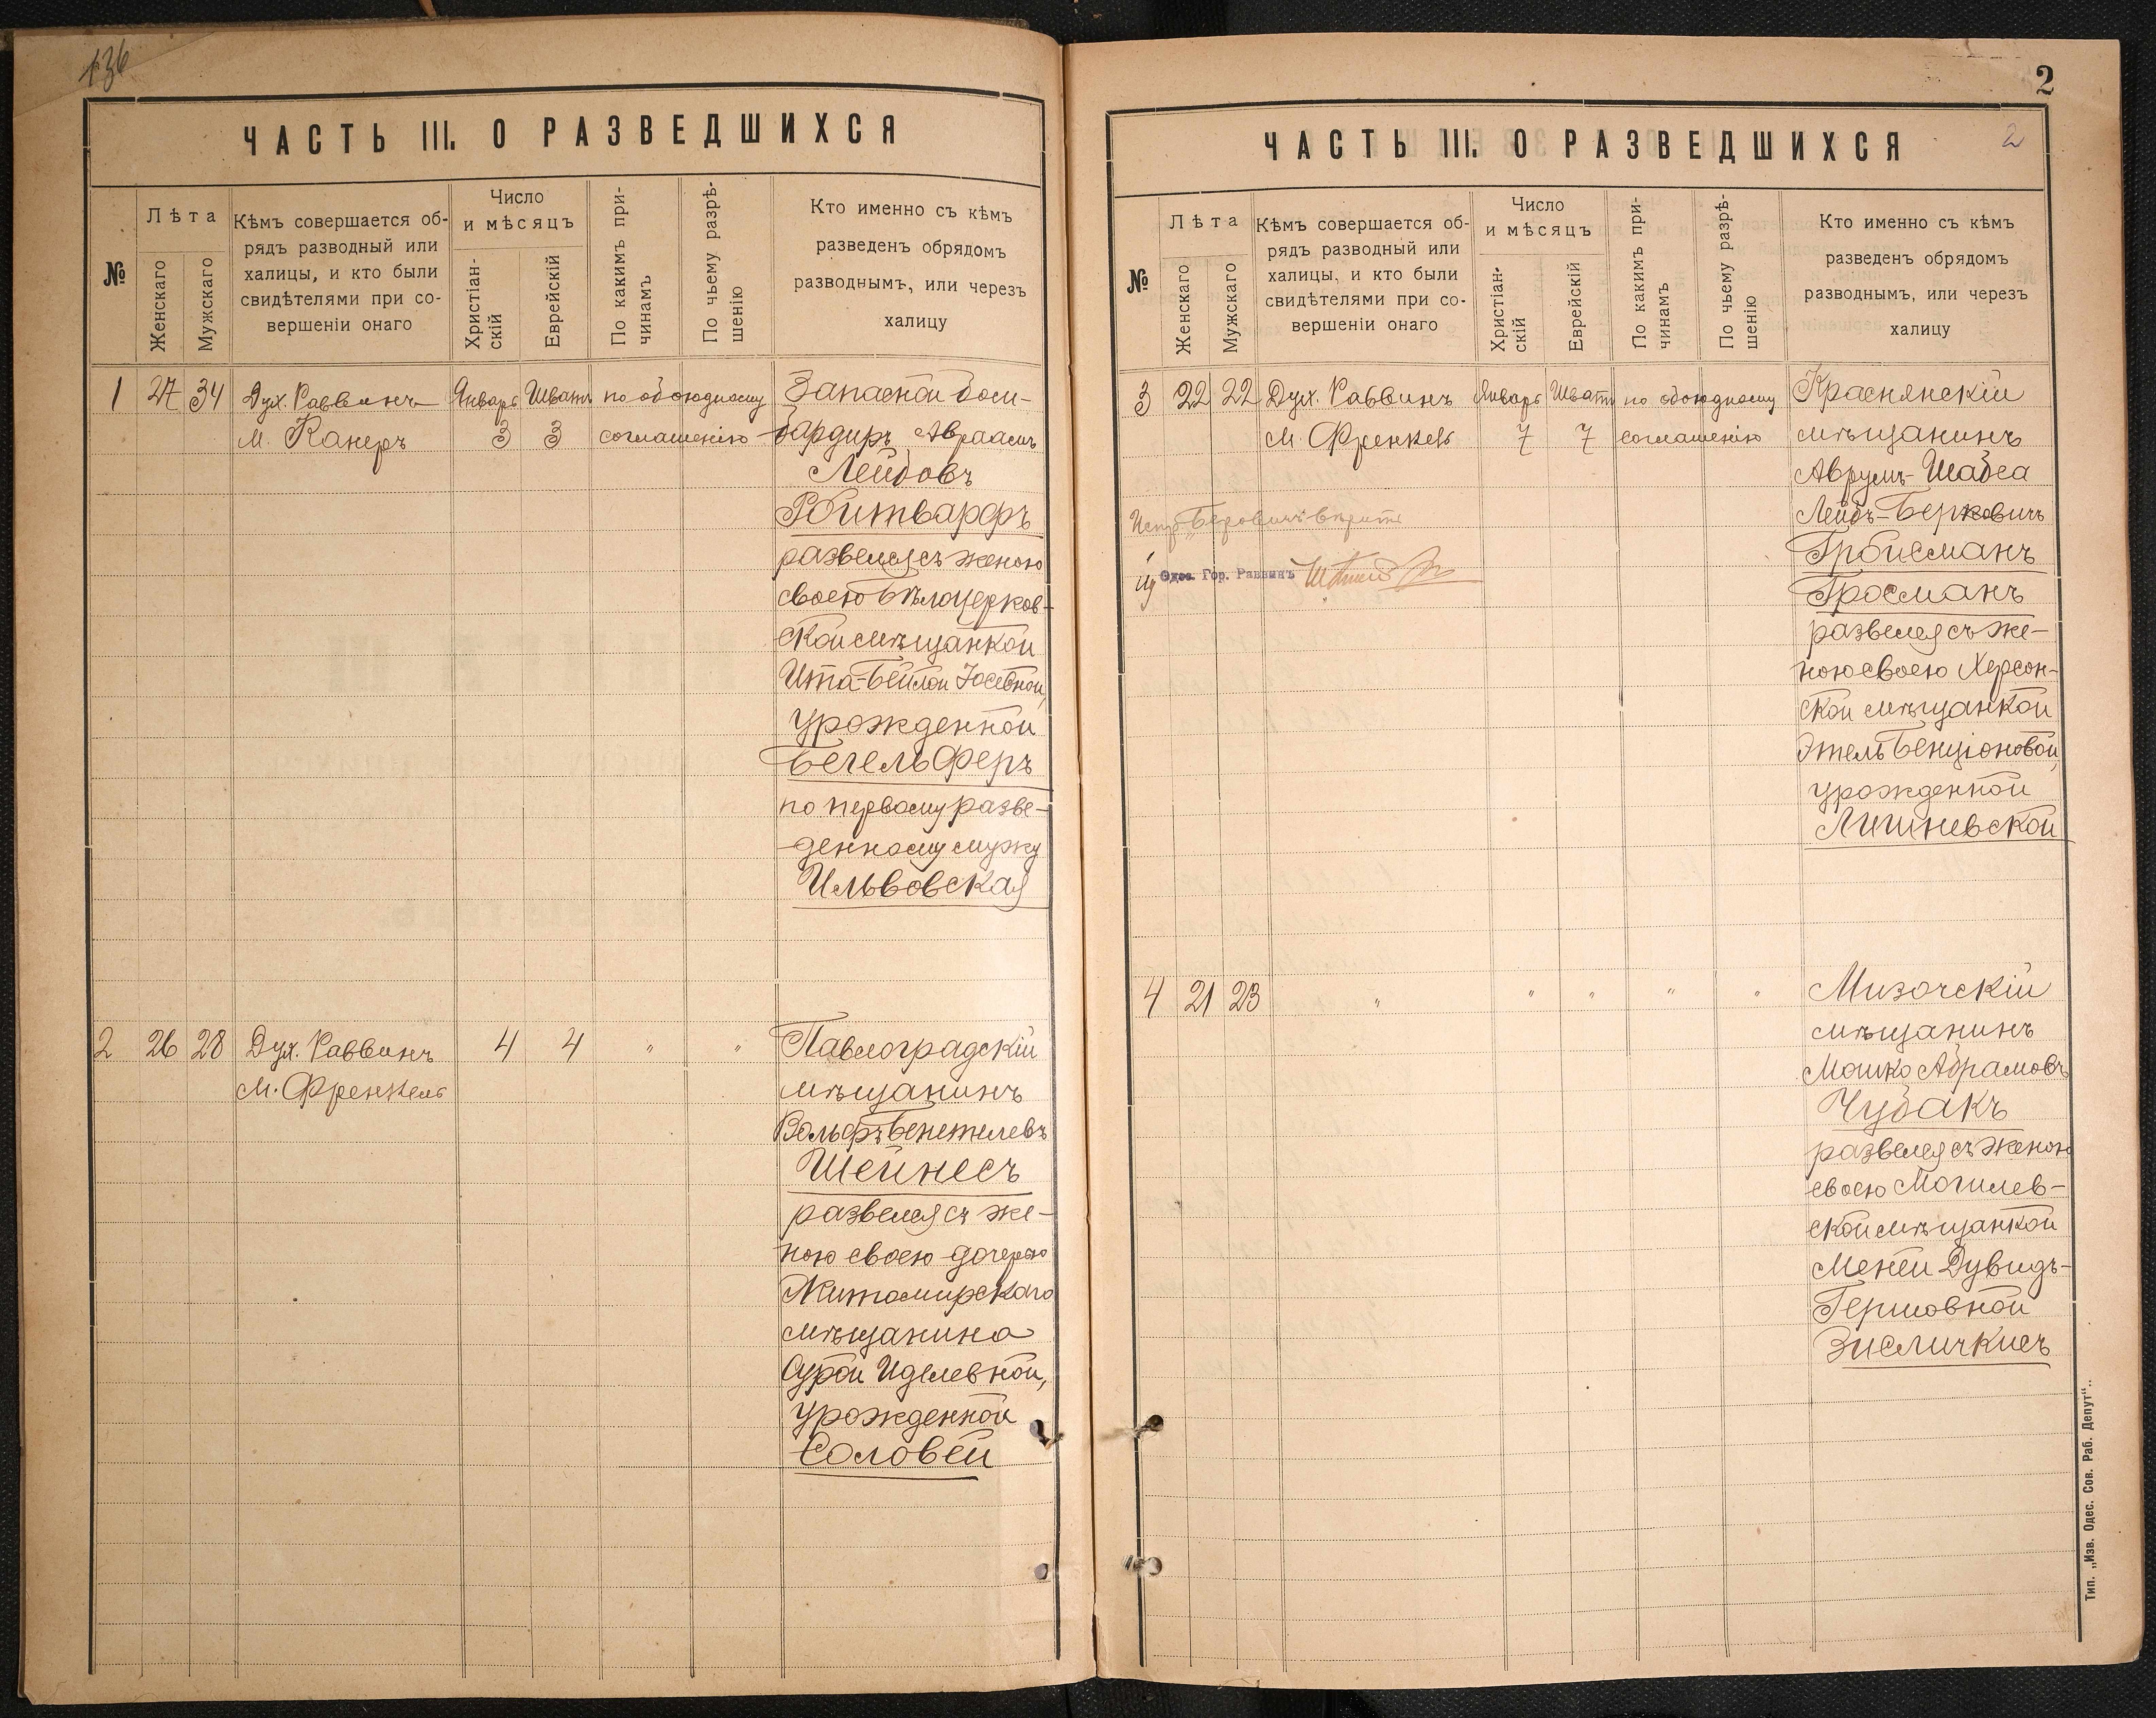 136
ЧАСТЬ III. О РАЗВЕДШИХСЯ
№
Лѣта
Женскаго
Мужскаго
Кѣмъ совершается об-
рядъ разводный или
халицы, и кто были
свидѣтелями при со-
вершеніи онаго
Число
и мѣсяцъ
Христіан-
скій
Еврейскій
По какимъ при-
чинамъ
По чьему разрѣ-
шенію
Кто именно съ кѣмъ
разведенъ обрядомъ
разводнымъ, или черезъ
халицу
1 27 34 Дух. Раввинъ Январь Шватъ по обоюдному Запасной бом-
М. Канеръ 3 3 соглашенію бардиръ Авраамъ
Лейбовъ
Ройтварфъ
развелся съ женою
своею Бѣлоцерков-
ской мѣщанкой
Ита-Бейлой Іосевной,
урожденной
Бегельферъ
по первому разве-
денному мужу
Ильвовская
2 26 28 Дух. Раввинъ 4 4 " " Павлоградскій
М. Френкель мѣщанинъ
Вольфъ Бенетилевъ
Шейнесъ
развелся съ же-
ною своею дочерью
Житомирскаго
мѣщанина
Сурой Иделевной,
урожденной
Соловей
2
2
ЧАСТЬ III. О РАЗВЕДШИХСЯ
№
Лѣта
Женскаго
Мужскаго
Кѣмъ совершается об-
рядъ разводный или
халицы, и кто были
свидѣтелями при со-
вершеніи онаго
Число
и мѣсяцъ
Христіан-
скій
Еврейскій
По какимъ при-
чинамъ
По чьему разрѣ-
шенію
Кто именно съ кѣмъ
разведенъ обрядомъ
разводнымъ, или черезъ
халицу
3 22 22 Дух. Раввинъ Январь Шватъ по обоюдному Краснянскій
М. Френкель 7 7 соглашенію мѣщанинъ
Аврумъ-Шабса
Лейбъ-Берковичъ
Гройсманъ
Гросманъ
развелся съ же-
ною своею Херсон-
ской мѣщанкой
Этель Бенціоновой,
урожденной
Лишневской
Испр. „Беровичъ"
Одес. Гор. Раввинъ
4 21 23 " " " " " Мизочскій
мѣщанинъ
Мошко Абрамовъ
Чубакъ
развелся съ женою
своею Могилев-
ской мѣщанкой
Менеи Дувидъ-
Гершовной
Зисличкисъ
Тип. „Изв. Одес. Сов. Раб. Депут"..